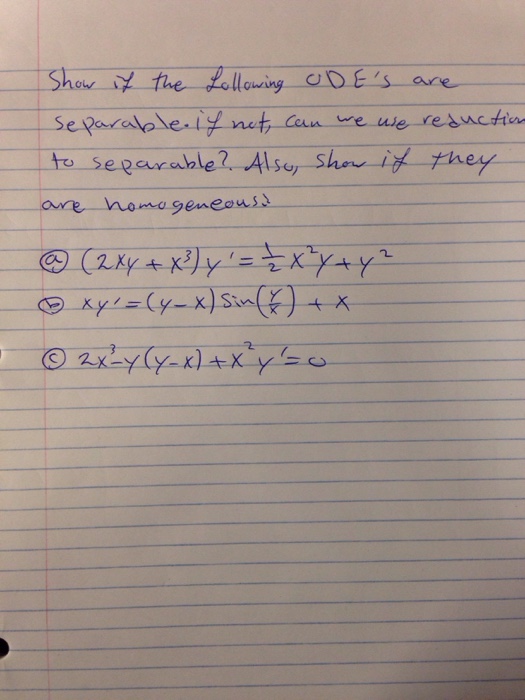 Show if the following ODE's are
separable. if not, can we use reduction
to separable? Also, show if they
are homogeneous?
ⓐ (2xy + x³) y' = ½ x²y + y²
ⓑ xy' = (y-x) sin(y/x) + x
ⓒ 2x³-y(y-x) + x²y' = 0